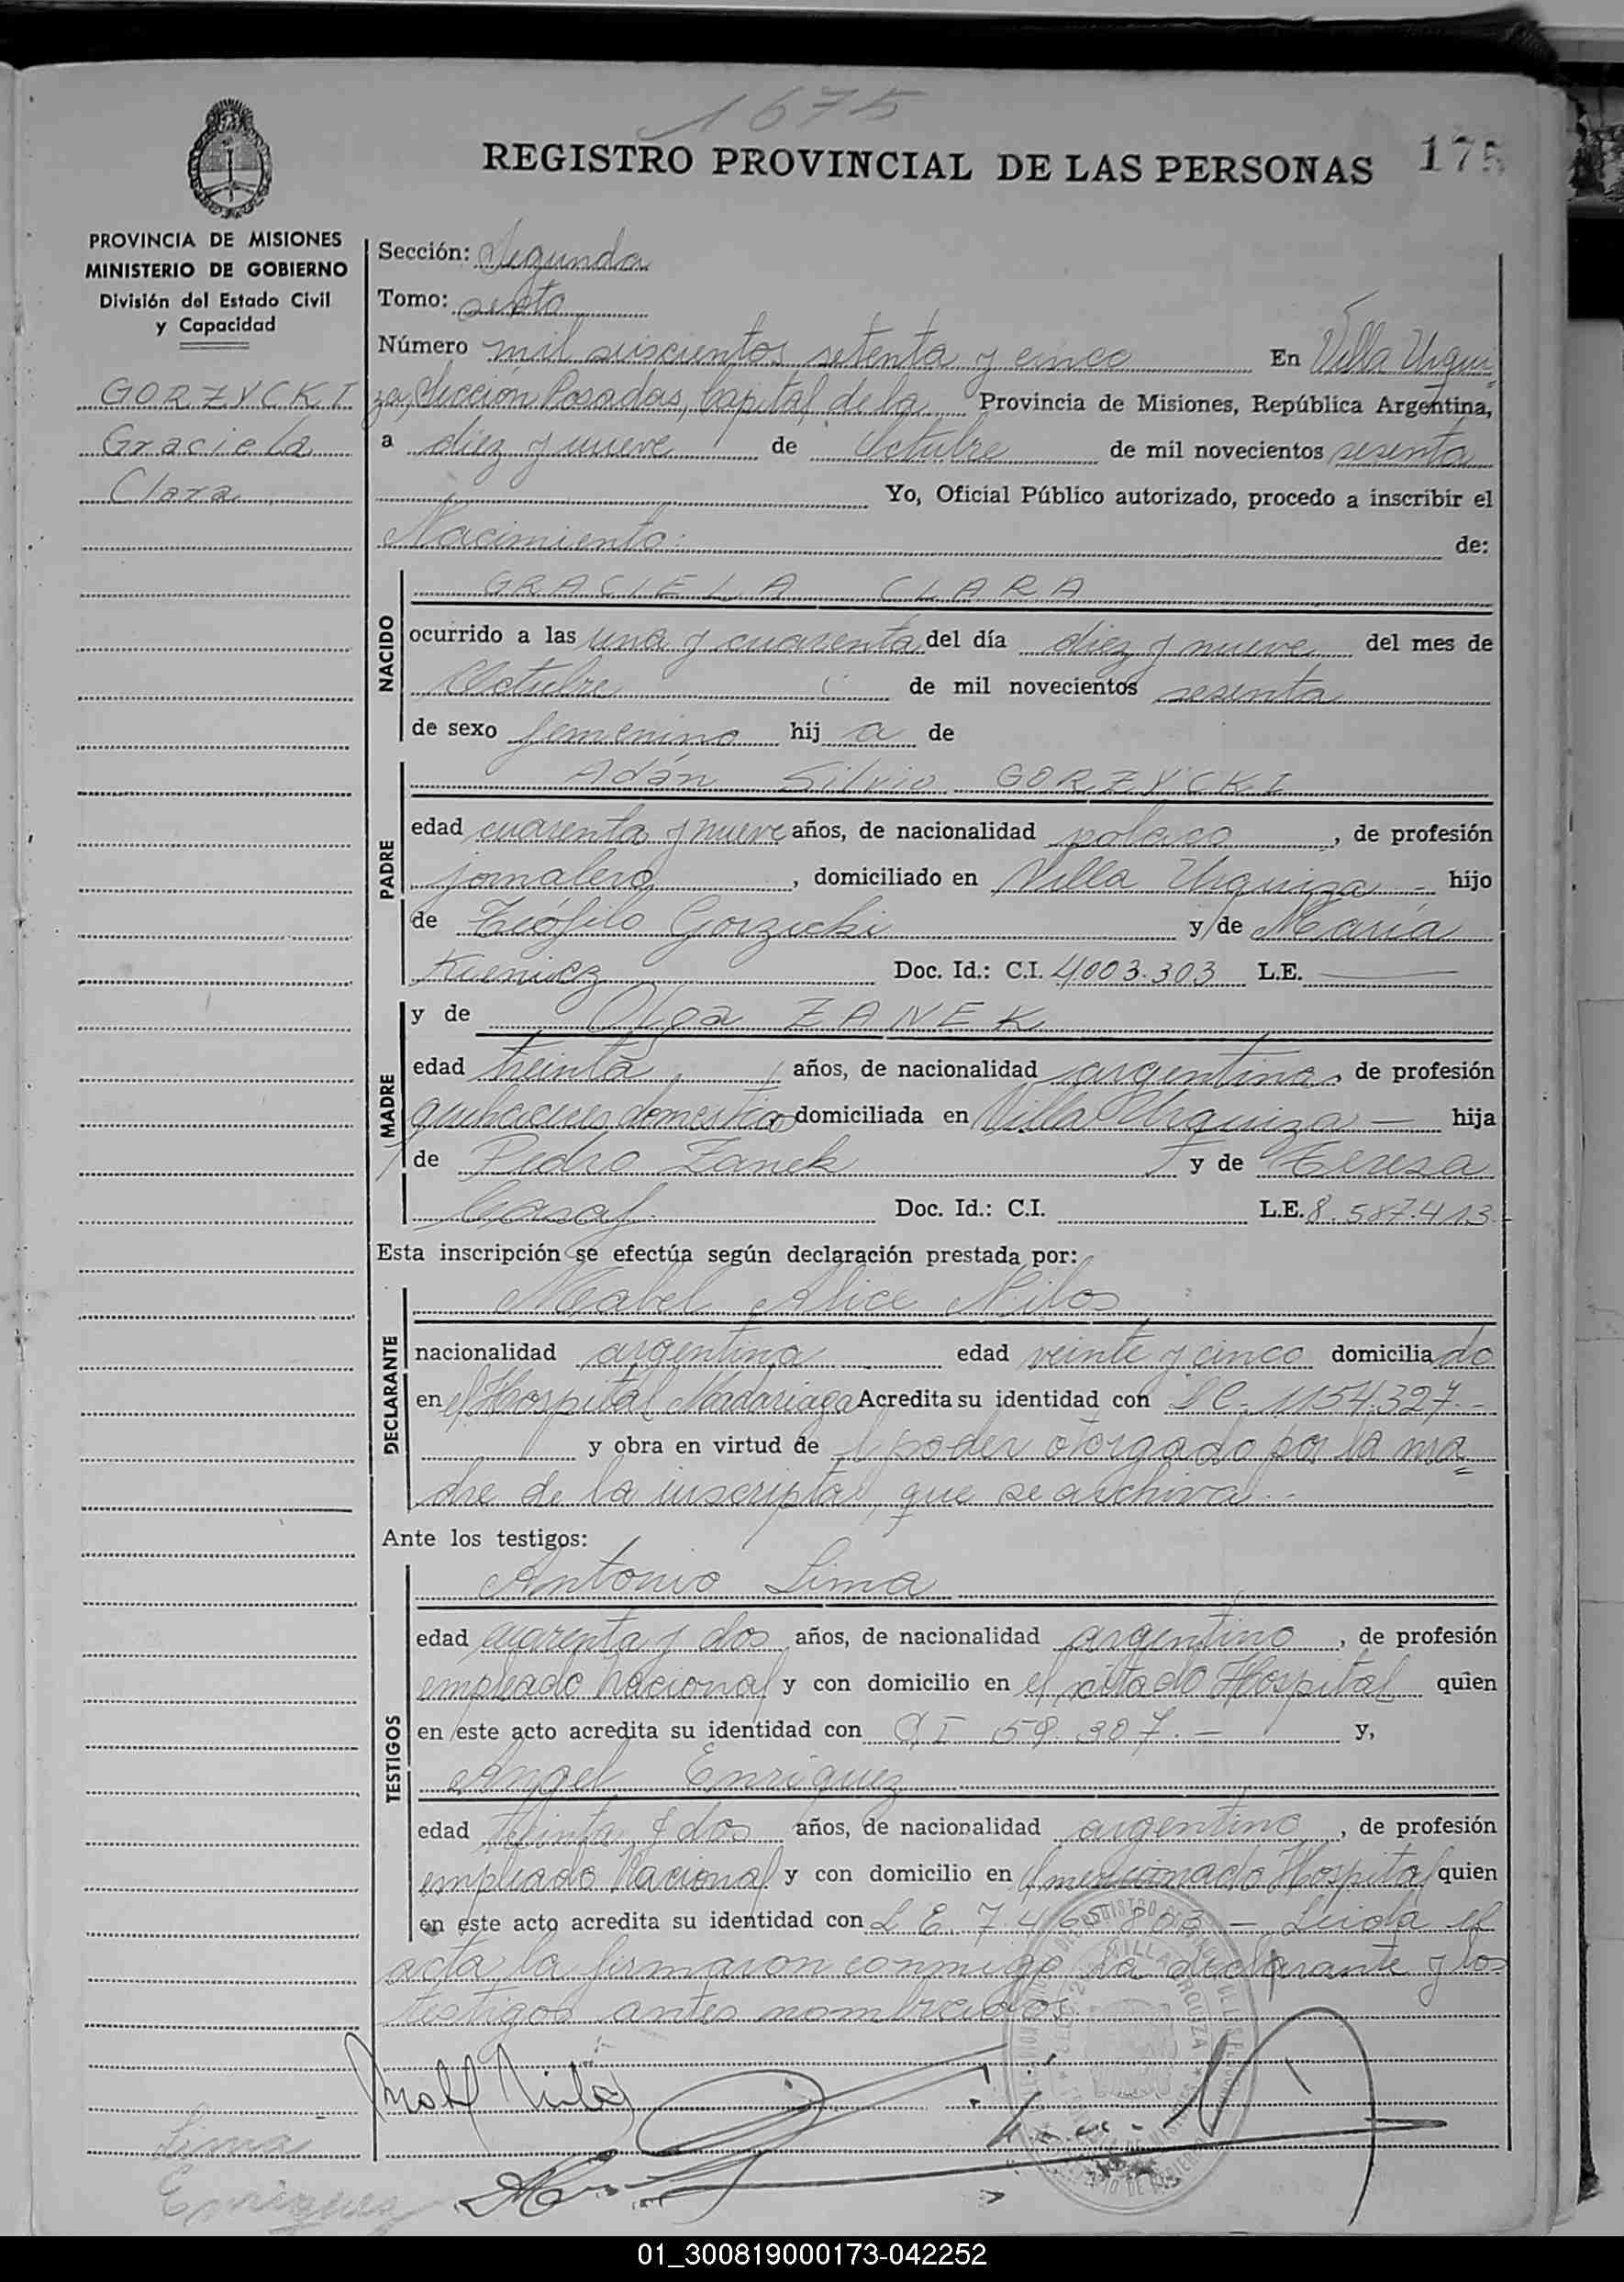 1675
REGISTRO PROVINCIAL DE LAS PERSONAS 175
PROVINCIA DE MISIONES
MINISTERIO DE GOBIERNO
División del Estado Civil
y Capacidad
GORZYCKI
Graciela
Clara
Sección: Segunda
Tomo: sexto
Número mil seiscientos setenta y cinco En Villa Urqui-
za, Sección Posadas, Capital de la Provincia de Misiones, República Argentina,
a diez y nueve de Octubre de mil novecientos sesenta
Yo, Oficial Público autorizado, procedo a inscribir el
Nacimiento: de:
NACIDO
GRACIELA CLARA
ocurrido a las una y cuarenta del día diez y nueve del mes de
Octubre de mil novecientos sesenta
de sexo femenino hij a de
PADRE
Adán Silvio GORZYCKI
edad cuarenta y nueve años, de nacionalidad polaco, de profesión
jornalero, domiciliado en Villa Urquiza - hijo
de Teófilo Gorzicki y de María
Doc. Id.: C.I. 4003.303 L.E.
MADRE
y de Olga ZANEK
edad treinta años, de nacionalidad argentina, de profesión
quehaceres domesticos domiciliada en Villa Urquiza - hija
de Pedro Zanek y de Teresa
Doc. Id.: C.I. L.E. 8.587.413
Esta inscripción se efectúa según declaración prestada por:
DECLARANTE
Mabel Alice Nilos
nacionalidad argentina edad veinte y cinco domiciliado
en el Hospital Madariaga Acredita su identidad con LC. 1154.327.-
y obra en virtud de el poder otorgado por la ma=
dre de la inscripta, que se archiva.-
Ante los testigos:
TESTIGOS
Antonio Lima
edad cuarenta y dos años, de nacionalidad argentino, de profesión
empleado nacional y con domicilio en el citado Hospital quien
en este acto acredita su identidad con CI 59.307.- y,
Angel Enriquez
edad treinta y dos años, de nacionalidad argentino, de profesión
empleado Nacional y con domicilio en el mencionado Hospital quien
en este acto acredita su identidad con L.E. - Leida el
acta la firmaron conmigo la declarante y los
testigos antes nombrados.
Lima
Enriquez
01_300819000173-042252